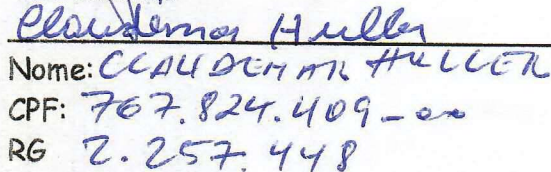 Claudemar Huller
Nome: CLAUDEMAR HULLER
CPF: 767.824.409-00
RG 2.257.448